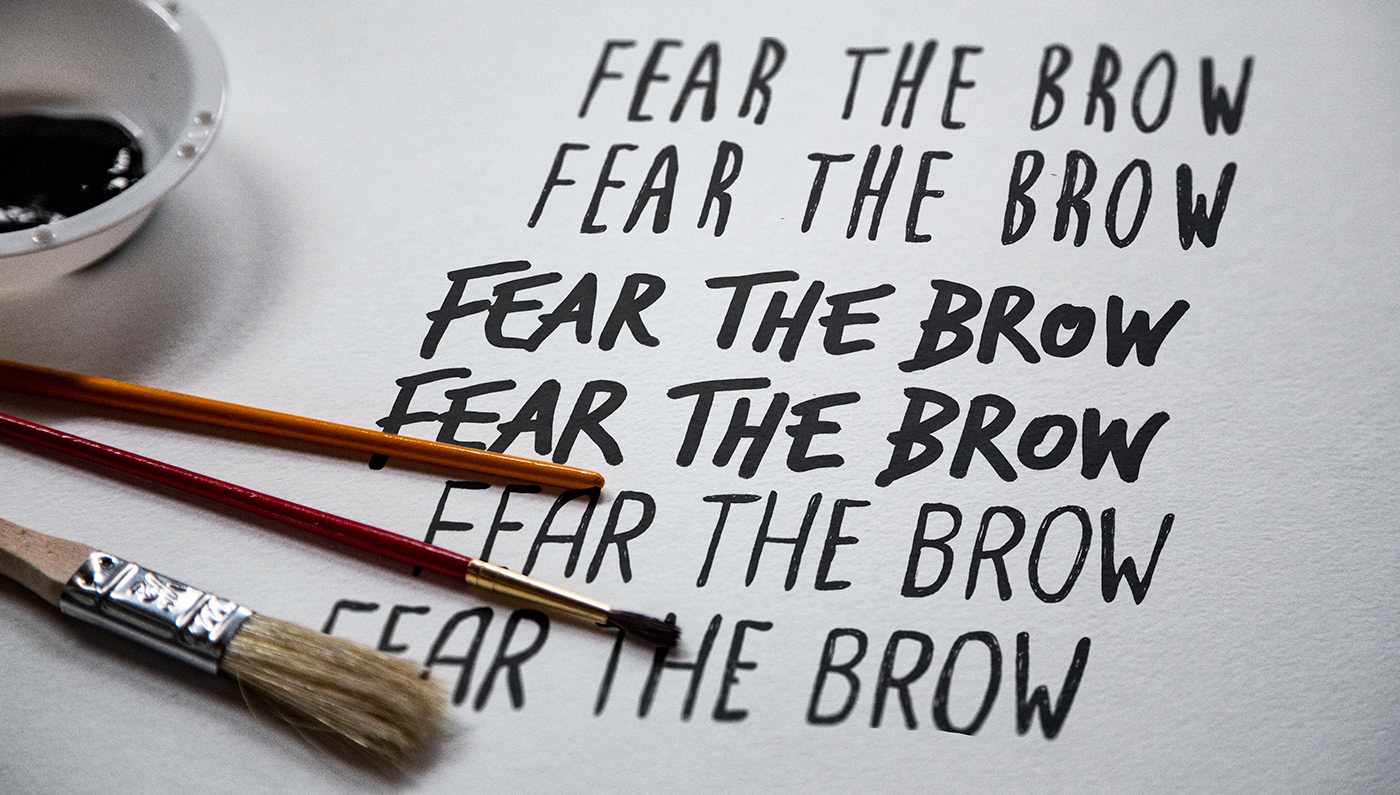 FEAR THE BROW
FEAR THE BROW
FEAR THE BROW
FEAR THE BROW
FEAR THE BROW
FEAR THE BROW